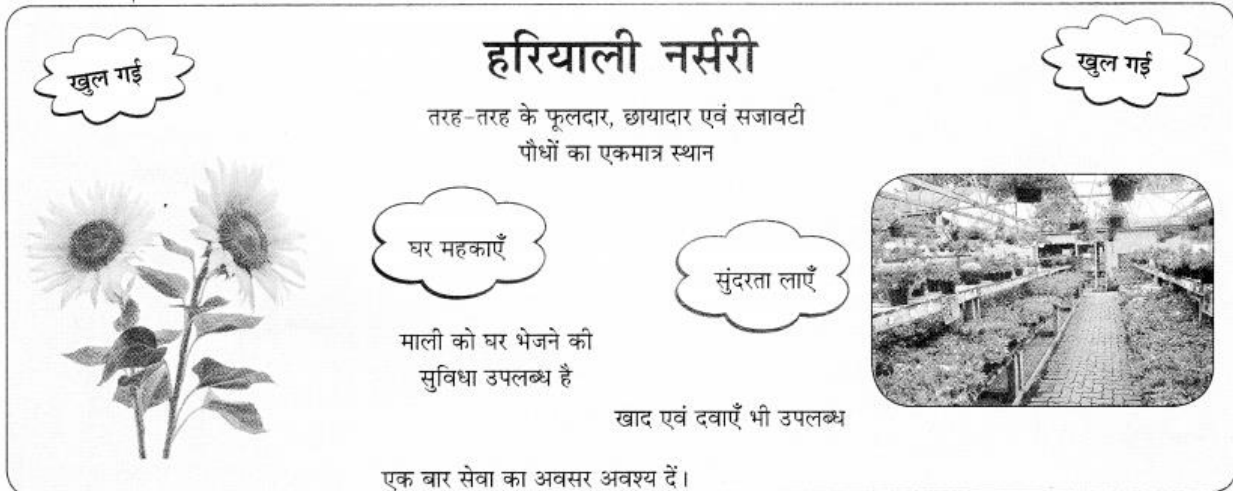 खुल गई
हरियाली नर्सरी
खुल गई
तरह-तरह के फूलदार, छायादार एवं सजावटी
पौधों का एकमात्र स्थान
घर महकाएँ
सुंदरता लाएँ
माली को घर भेजने की
सुविधा उपलब्ध है
खाद एवं दवाएँ भी उपलब्ध
एक बार सेवा का अवसर अवश्य दें।